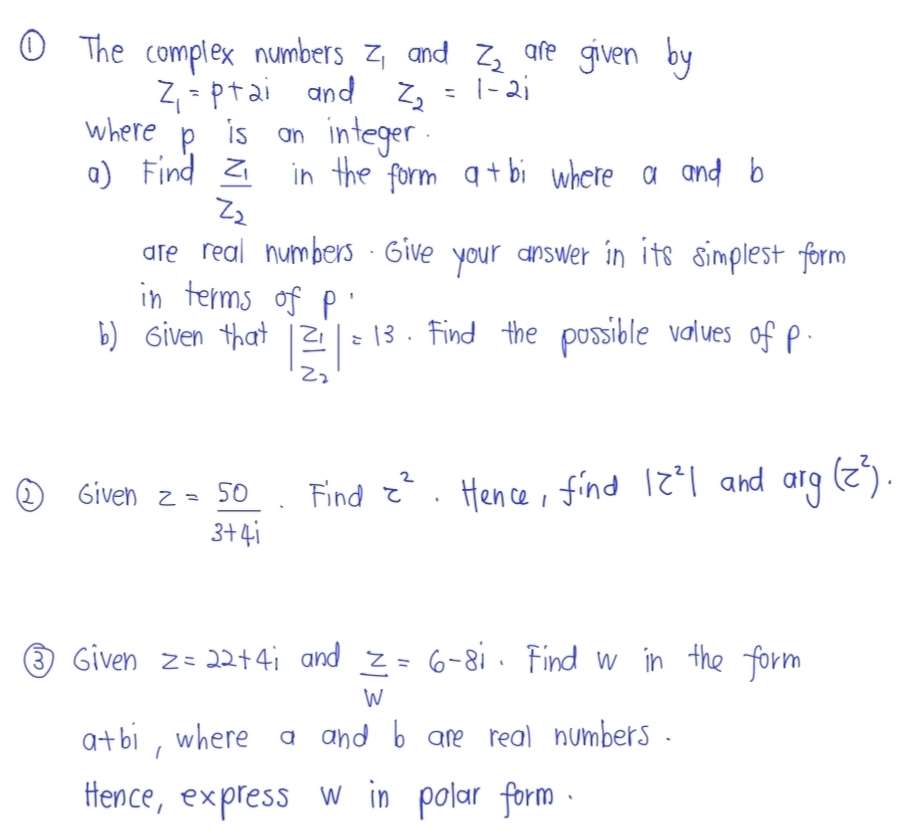 ① The complex numbers z₁ and z₂ are given by
z₁ = p+2i and z₂ = 1-2i
where p is an integer.
a) Find z₁/z₂ in the form a+bi where a and b
are real numbers. Give your answer in its simplest form
in terms of p.
b) Given that |z₁/z₂| = 13. Find the possible values of p.
② Given z = 50/(3+4i). Find z². Hence, find |z²| and arg(z²).
③ Given z = 22+4i and z/w = 6-8i. Find w in the form
a+bi, where a and b are real numbers.
Hence, express w in polar form.